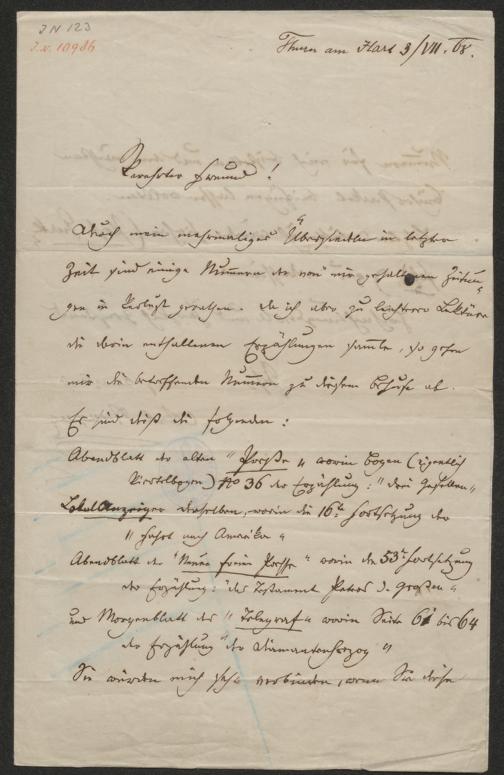 JN 123
J.N. 10986
Thurn am Hart 3/VII. 68.
Verehrter Freund!
Durch mein mehrmaliges Übersiedeln in letzter
Zeit sind einige Nummern der von mir gehaltenen Zeitun-
gen in Verlust gerathen. Da ich aber zu leichterer Lektüre
die darin enthaltenen Erzählungen sammle, so gehen
mir die betreffenden Nummern zu diesem Behufe ab.
Es sind dieß die folgenden:
Abendblatt der alten "Presse" worin Bogen (eigentlich
Viertelbogen) No 36 der Erzählung: "drei Gesellen"
LokalAnzeiger derselben, worin die 16te Fortsetzung der
"Fahrt nach Amerika"
Abendblatt der "Neuen freien Presse" worin die 53te Fortsetzung
der Erzählung: "das Testament Peters d. Großen"
und Morgenblatt des "Telegraf" worin Seite 61 bis 64
der Erzählung "der Diamantenherzog"
Sie würden mich sehr verbinden, wenn Sie diese